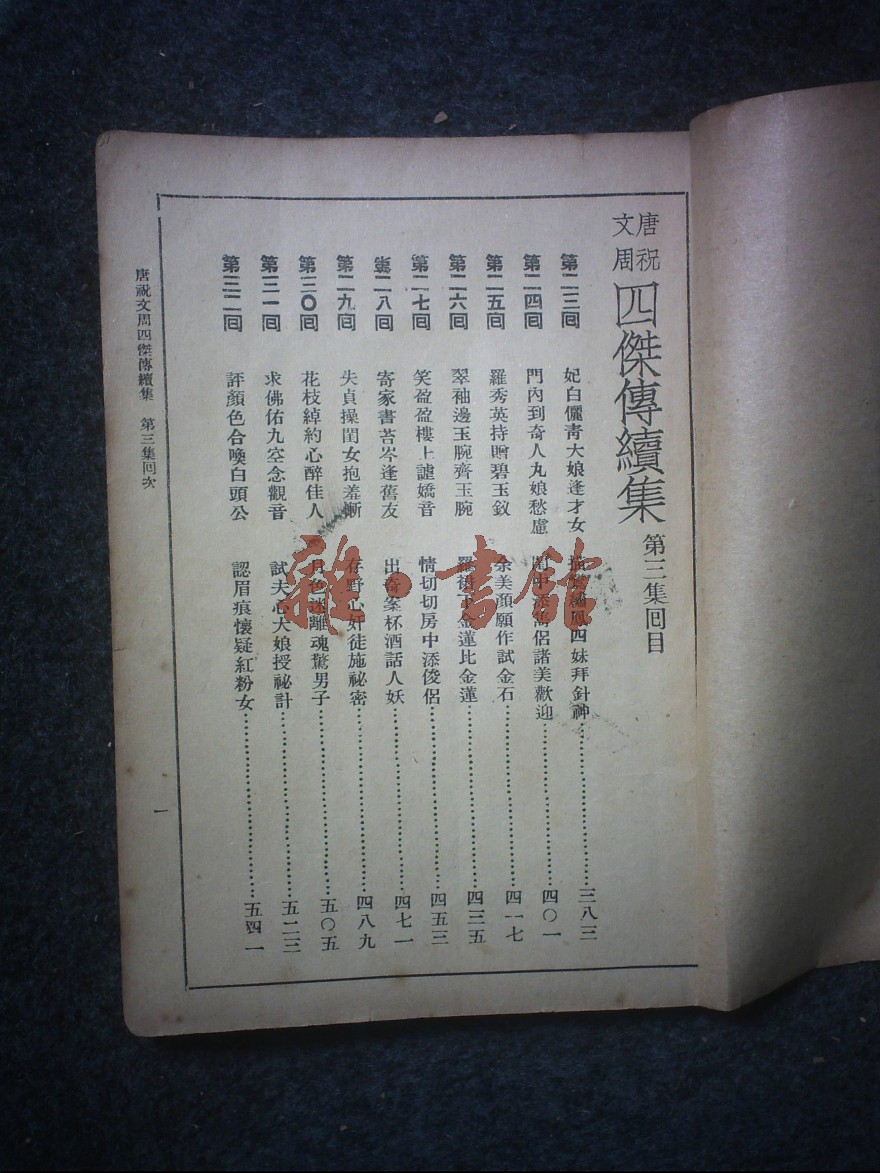 唐祝文周四傑傳續集 第三集回目
第二三回 妃白儷青大娘逢才女 繡鳳四妹拜針神 三八三
第二四回 門內到奇人九娘愁慮 閣中添俊侶諸美歡迎 四〇一
第二五回 羅秀英持贈碧玉釵 余美顏願作試金石 四一七
第二六回 翠袖邊玉腕齊玉腕 羅裙下金蓮比金蓮 四三五
第二七回 笑盈盈樓上謔嬌音 情切切房中添俊侶 四五三
第二八回 寄家書苔岑逢舊友 出奇案杯酒話人妖 四七一
第二九回 失貞操閨女抱羞慚 存野心奸徒施祕密 四八九
第三〇回 花枝綽約心醉佳人 月色迷離魂驚男子 五〇五
第三一回 求佛佑九空念觀音 試夫心大娘授祕計 五二三
第三二回 評顏色合喚白頭公 認眉痕懷疑紅粉女 五四一
唐祝文周四傑傳續集 第三集回次
一
雜·書館